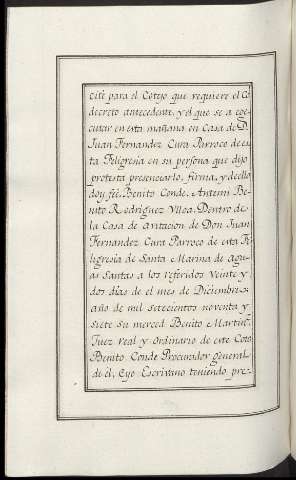 cité para el Cotejo que requiere el Co
decreto antecedente, y el que se a ege
cutar en esta mañana en Casa de D.
Juan Fernandez Cura Parroco de es
ta Feligresia en su persona que dijo
protesta presenciarlo, firma, y de ello
doy fée. Benito Conde. Antemi Be-
nito Rodriguez Ulloa. Dentro de
la Casa de avitacion de Don Juan
Fernandez Cura Parroco de esta Fe
ligresia de Santa Marina de agu-
as Santas a los referidos Veinte y
dos dias de el mes de Diciembre
año de mil setecientos noventa y
siete su merced Benito Martin
Juez real y ordinario de este Coto
Benito Conde Procurador general
de él, Eyo Escrivano teniendo pre-